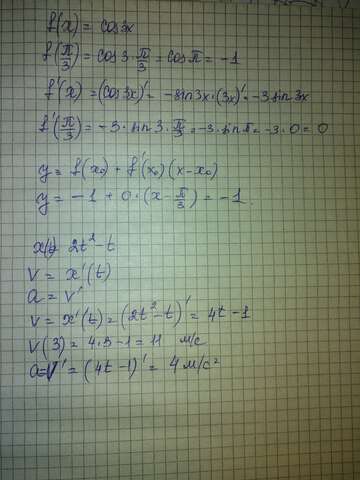 f(x) = cos3x
f(π/3) = cos 3·π/3 = cosπ = -1
f'(x) = (cos3x)' = -sin3x·(3x)' = -3sin3x
f'(π/3) = -3·sin3·π/3 = -3·sinπ = -3·0 = 0
y = f(x₀) + f'(x₀)(x-x₀)
y = -1 + 0·(x-π/3) = -1.
x(t) = 2t²-t
v = x'(t)
a = v'
v = x'(t) = (2t²-t)' = 4t-1
v(3) = 4·3-1 = 11 м/с
a=v' = (4t-1)' = 4 м/с²